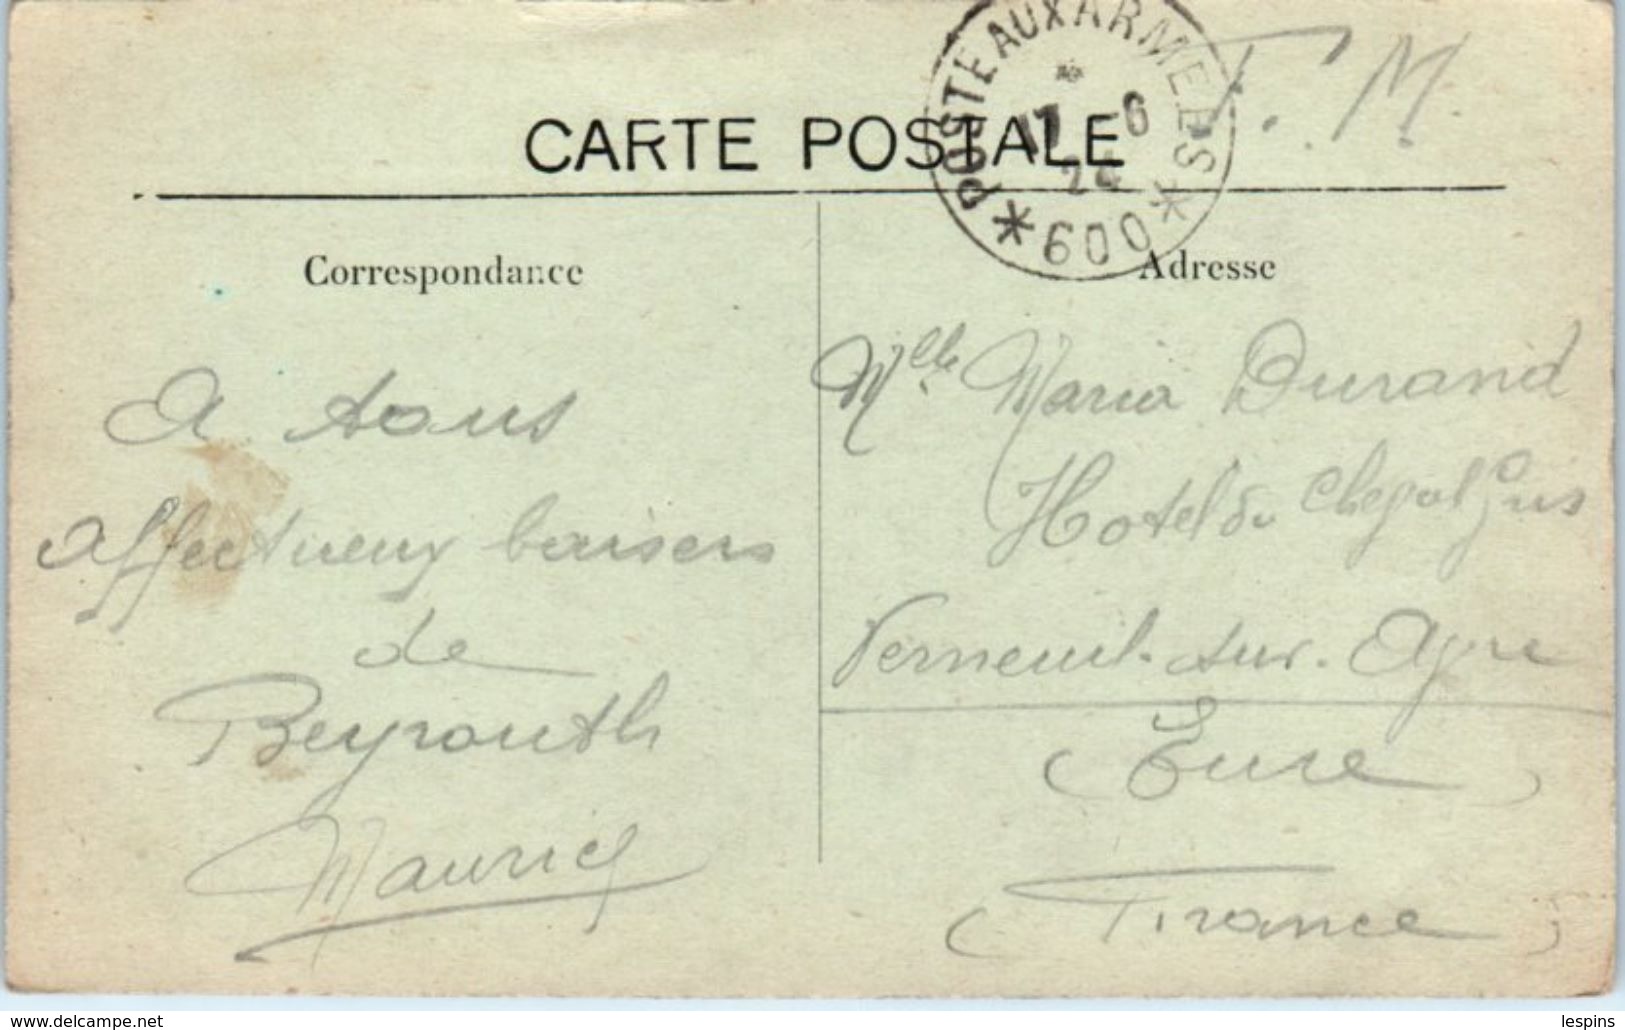 CARTE POSTALE
F. M.
POSTE AUX ARMEES
17 -6
24
*600*
Correspondance
Adresse
A tous
affectueux baisers
de
Beyrouth
Maurice
Mlle Maria Durand
Hotel du Cheval Gris
Verneuil-sur-Avre
(Eure)
(France)
www.delcampe.net
lespins